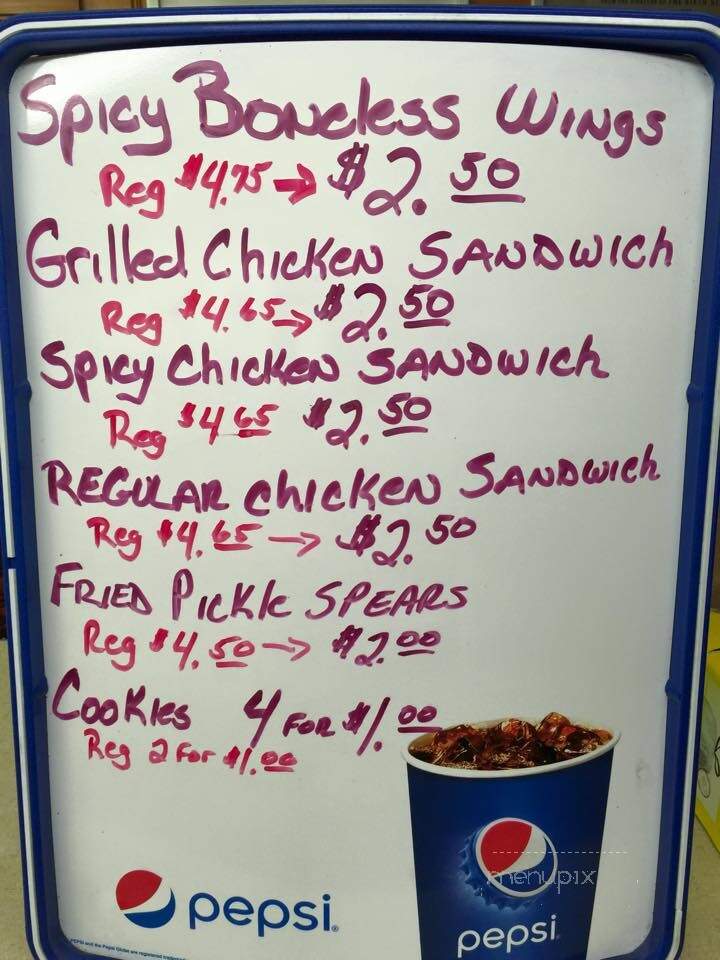 Spicy Boneless Wings
Reg $4.75 → $2.50
Grilled Chicken SANDWich
Reg $4.65 → $2.50
Spicy Chicken SANDWich
Reg $4.65 $2.50
REGULAR chicken SANDWich
Reg $4.65 → $2.50
FRIED Pickle SPEARS
Reg $4.50 → $2.00
Cookies 4 FOR $1.00
Reg 2 For $1.00
menupix
pepsi
pepsi